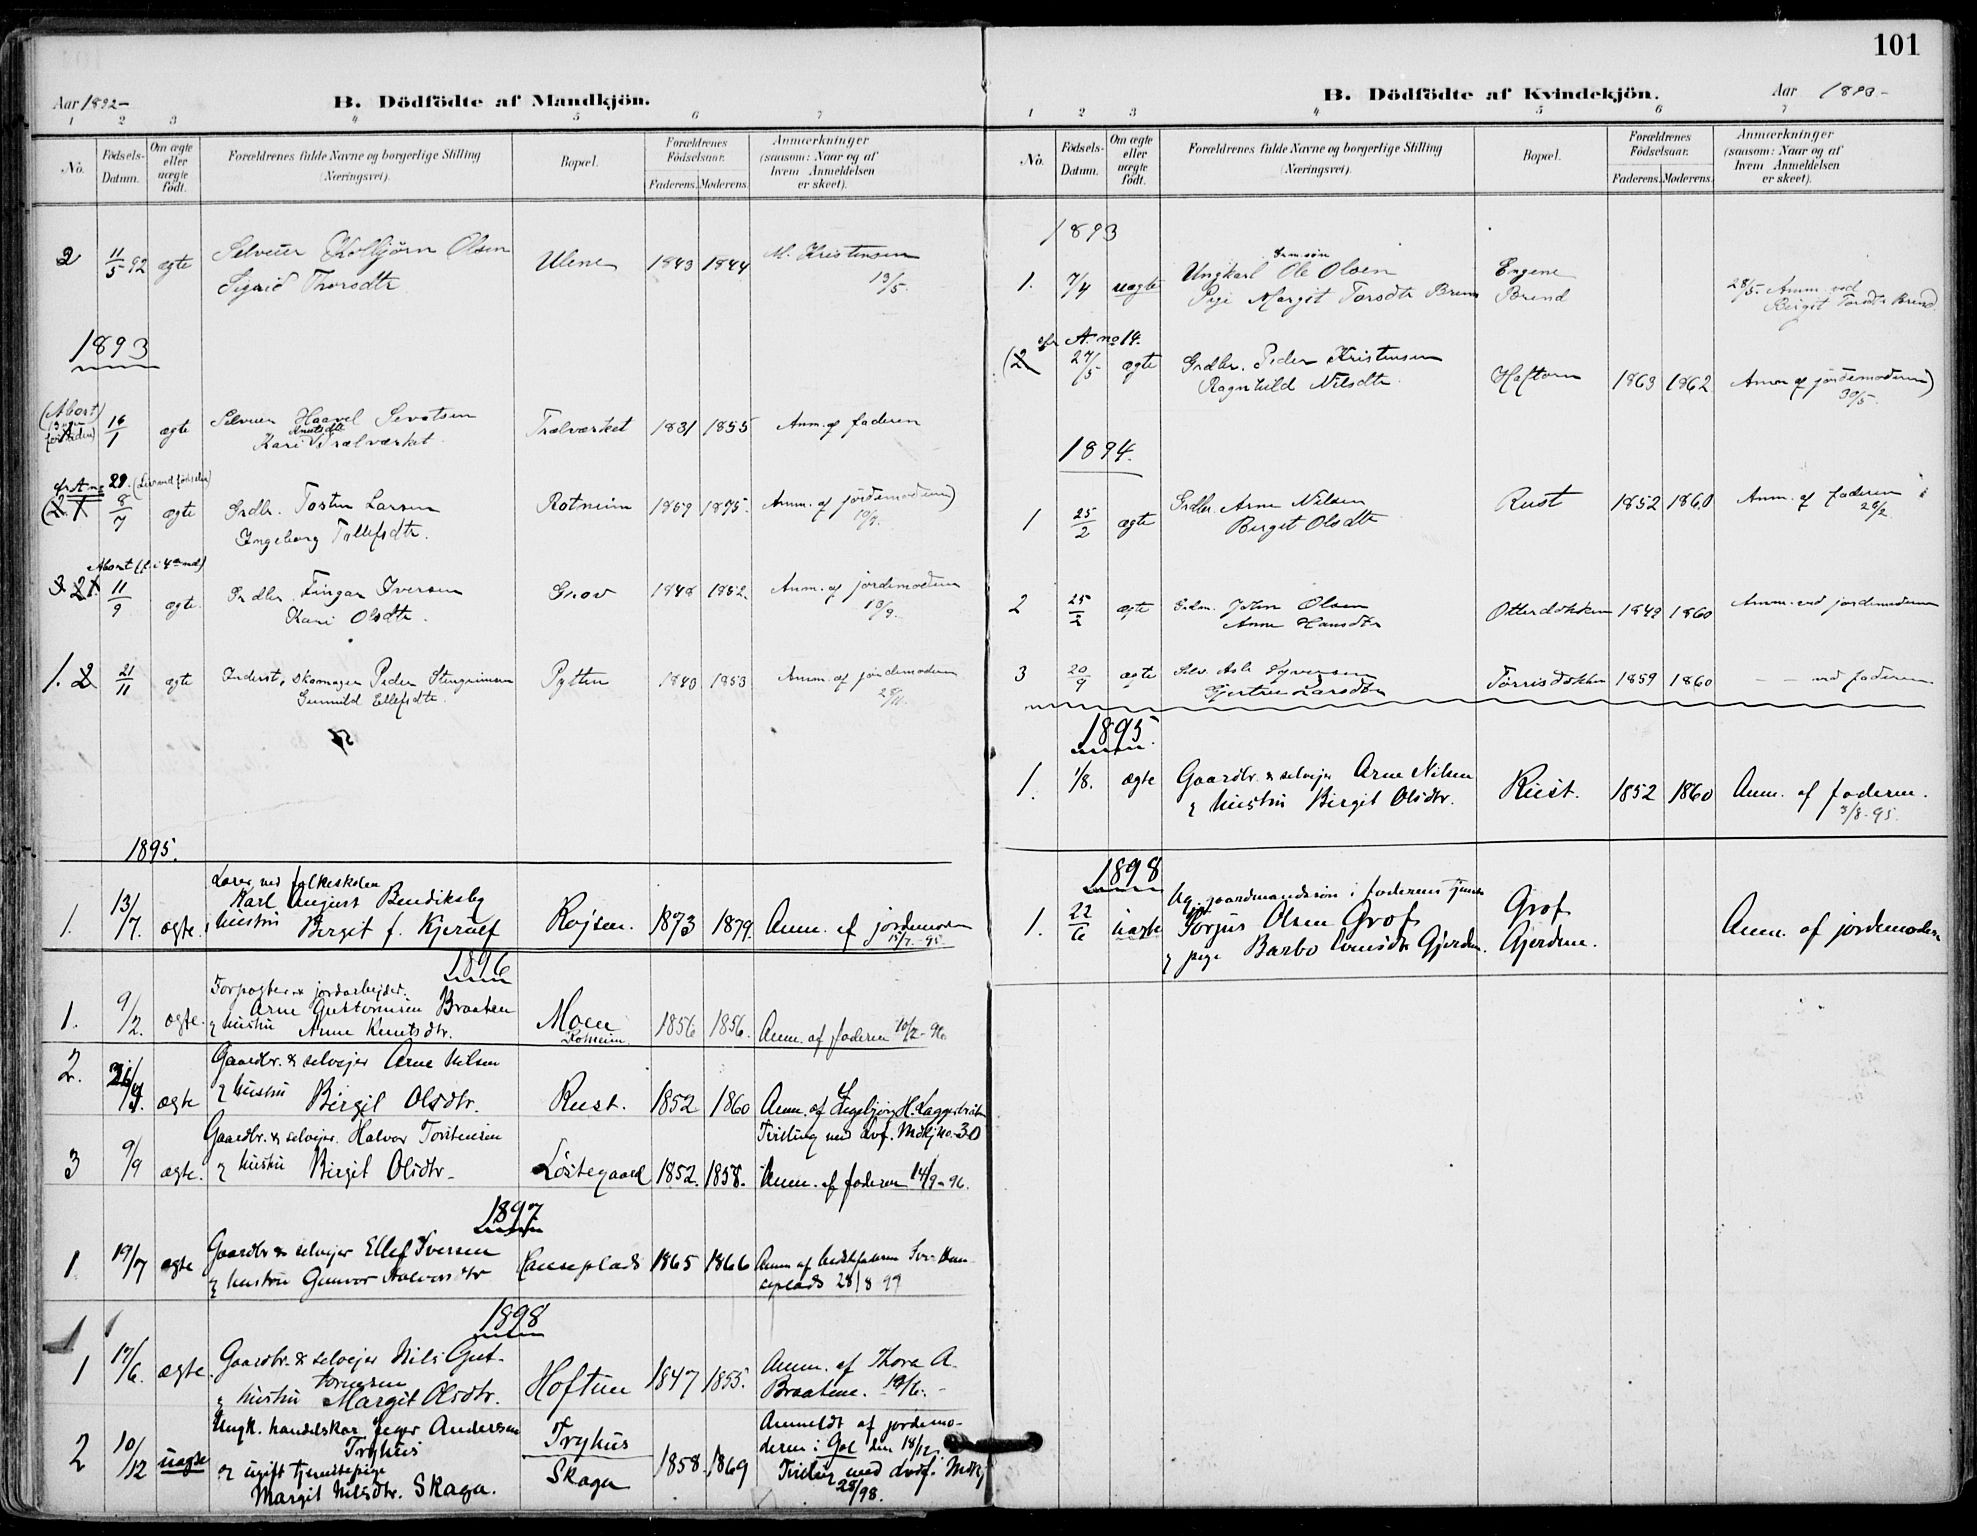 101
Aar 1892-
B. Dödfödte af Mandkjön.
1 2 3 4 5 6 7
No.
Födsels-Datum.
Om ægte eller uægte födt.
Forældrenes fulde Navne og borgerlige Stilling (Næringsvei).
Bopæl.
Forældrenes Födselsaar.
Faderens. Moderens.
Anmærkninger (saasom: Naar og af hvem Anmeldelsen er skeet).
2 11/5 92 ægte Selveier Kolbjörn Olsen Ulene 1843 1844 M. Kristensen
Sigrid Thorsdtr 13/5.
1893
(Abort)
16/1 ægte Selveier Haavel Sevatsen Trælværket 1831 1855 Anm. af faderen
Knutsdtr
Kari Trælværket
cfr A no 29.
8/7 ægte Grdbr. Tosten Larsen Rotneim 1869 1875. Anm. af jordemoderen)
Ingeborg Tollefsdtr. 10/7.
Abort
3 2 1. 11/9 ægte. Grdbr. Fingar Iversen Grov 1848 1852. Anm. af jordemoderen
Kari Olsdtr. 18/9.
1. 2 21/11 ægte Inderst, skomager Peder Stengrimsen Pytten 1843 1853 Anm. af jordemoderen
Gunnild Ellefsdtr. 28/11.
1895.
Lærer ved folkeskolen
1. 13/7. ægte. Karl August Bendiksby Rojsen. 1873 1879. Anm. af jordemoder
hustru Birgit f. Kjerulf 15/7-95
1896
Forpagter & jordarbejder.
1. 9/2. ægte. Arne Guttormsen Braaten Moen 1856 1856. Anm. af faderen 10/2-96
& hustru Anne Knutsdtr. Rotneim
2. ægte Gaardbr. & selvejer Arne Nilsen Rust. 1852 1860 Anm. af
& hustru Birgit Olsdtr.
3 9/9 ægte. Gaardbr. & selvejer. Halvor Torstensen Löstegaard 1852. 1858. Tvilling med dvf. Mdkj no. 30
& hustru Birgit Olsdtr. Anm. af faderen 14/9-96.
1897
1 19/7 ægte Gaardbr & selvejer Ellef Iversen 1865 1866 Anm af
& hustru Gunvor
1898
1 17/6. ægte. Gaardbr. & selvejer Nils Gut-tormsen Hoftun 1847 1855. Anm. af Thora A.
& hustru Margit Olsdtr. Braaten.
2 10/12 uægte Ungk. handelskar Andersen Tryhus Tryhus 1858 1869 Anmeldt af jordemo-
& ugift tjenestepige Skaga deren i Gol den 18/12
Margit Nilsdtr. Skaga. Tvilling med dvdf. Mdkj
28/98.
B. Dödfödte af Kvindekjön.
Aar 1893-
1 2 3 4 5 6 7
No.
Födsels-Datum.
Om ægte eller uægte födt.
Forældrenes fulde Navne og borgerlige Stilling (Næringsvei).
Bopæl.
Forældrenes Födselsaar.
Faderens. Moderens.
Anmærkninger (saasom: Naar og af hvem Anmeldelsen er skeet).
1893
1. 7/4 uægte Ungkarl Ole Olsen Engene 28/5. Anm. ved
Pige Margit Torsdtr Brend Brend Birgit Torsdtr Brend.
cfr A. no 14.
(2 27/5 ægte Grdbr. Peder Kristensen Haftorn 1863 1862 Anm af jordemoderen)
Ragnhild Nilsdtr. 30/5.
1894.
1 25/2 ægte Grdbr. Arne Nilsen Rust 1852 1860 Anm. af faderen
Birgit Olsdtr 26/2.
2 ægte Grdm. John Olsen Otterdokken 1849 1860 Anm. ved jordemoderen
Anne Hansdtr
3 20/9 ægte Selv. Asle Syversen Torrisdokken 1859 1860 — — ved faderen
Gjertru Larsdtr
1895.
1. 1/8. ægte Gaardbr. & selvejer Arne Nilsen Rust. 1852 1860 Anm. af faderen.
& hustru Birgit Olsdtr. 3/8-95.
1898
1. 22/6 uægte Ug. gaardmandssön i faderens tjeneste
Torjus Olsen Grof Grof Anm. af jordemoderen
& pige Barbo Gjerden. Gjerden.